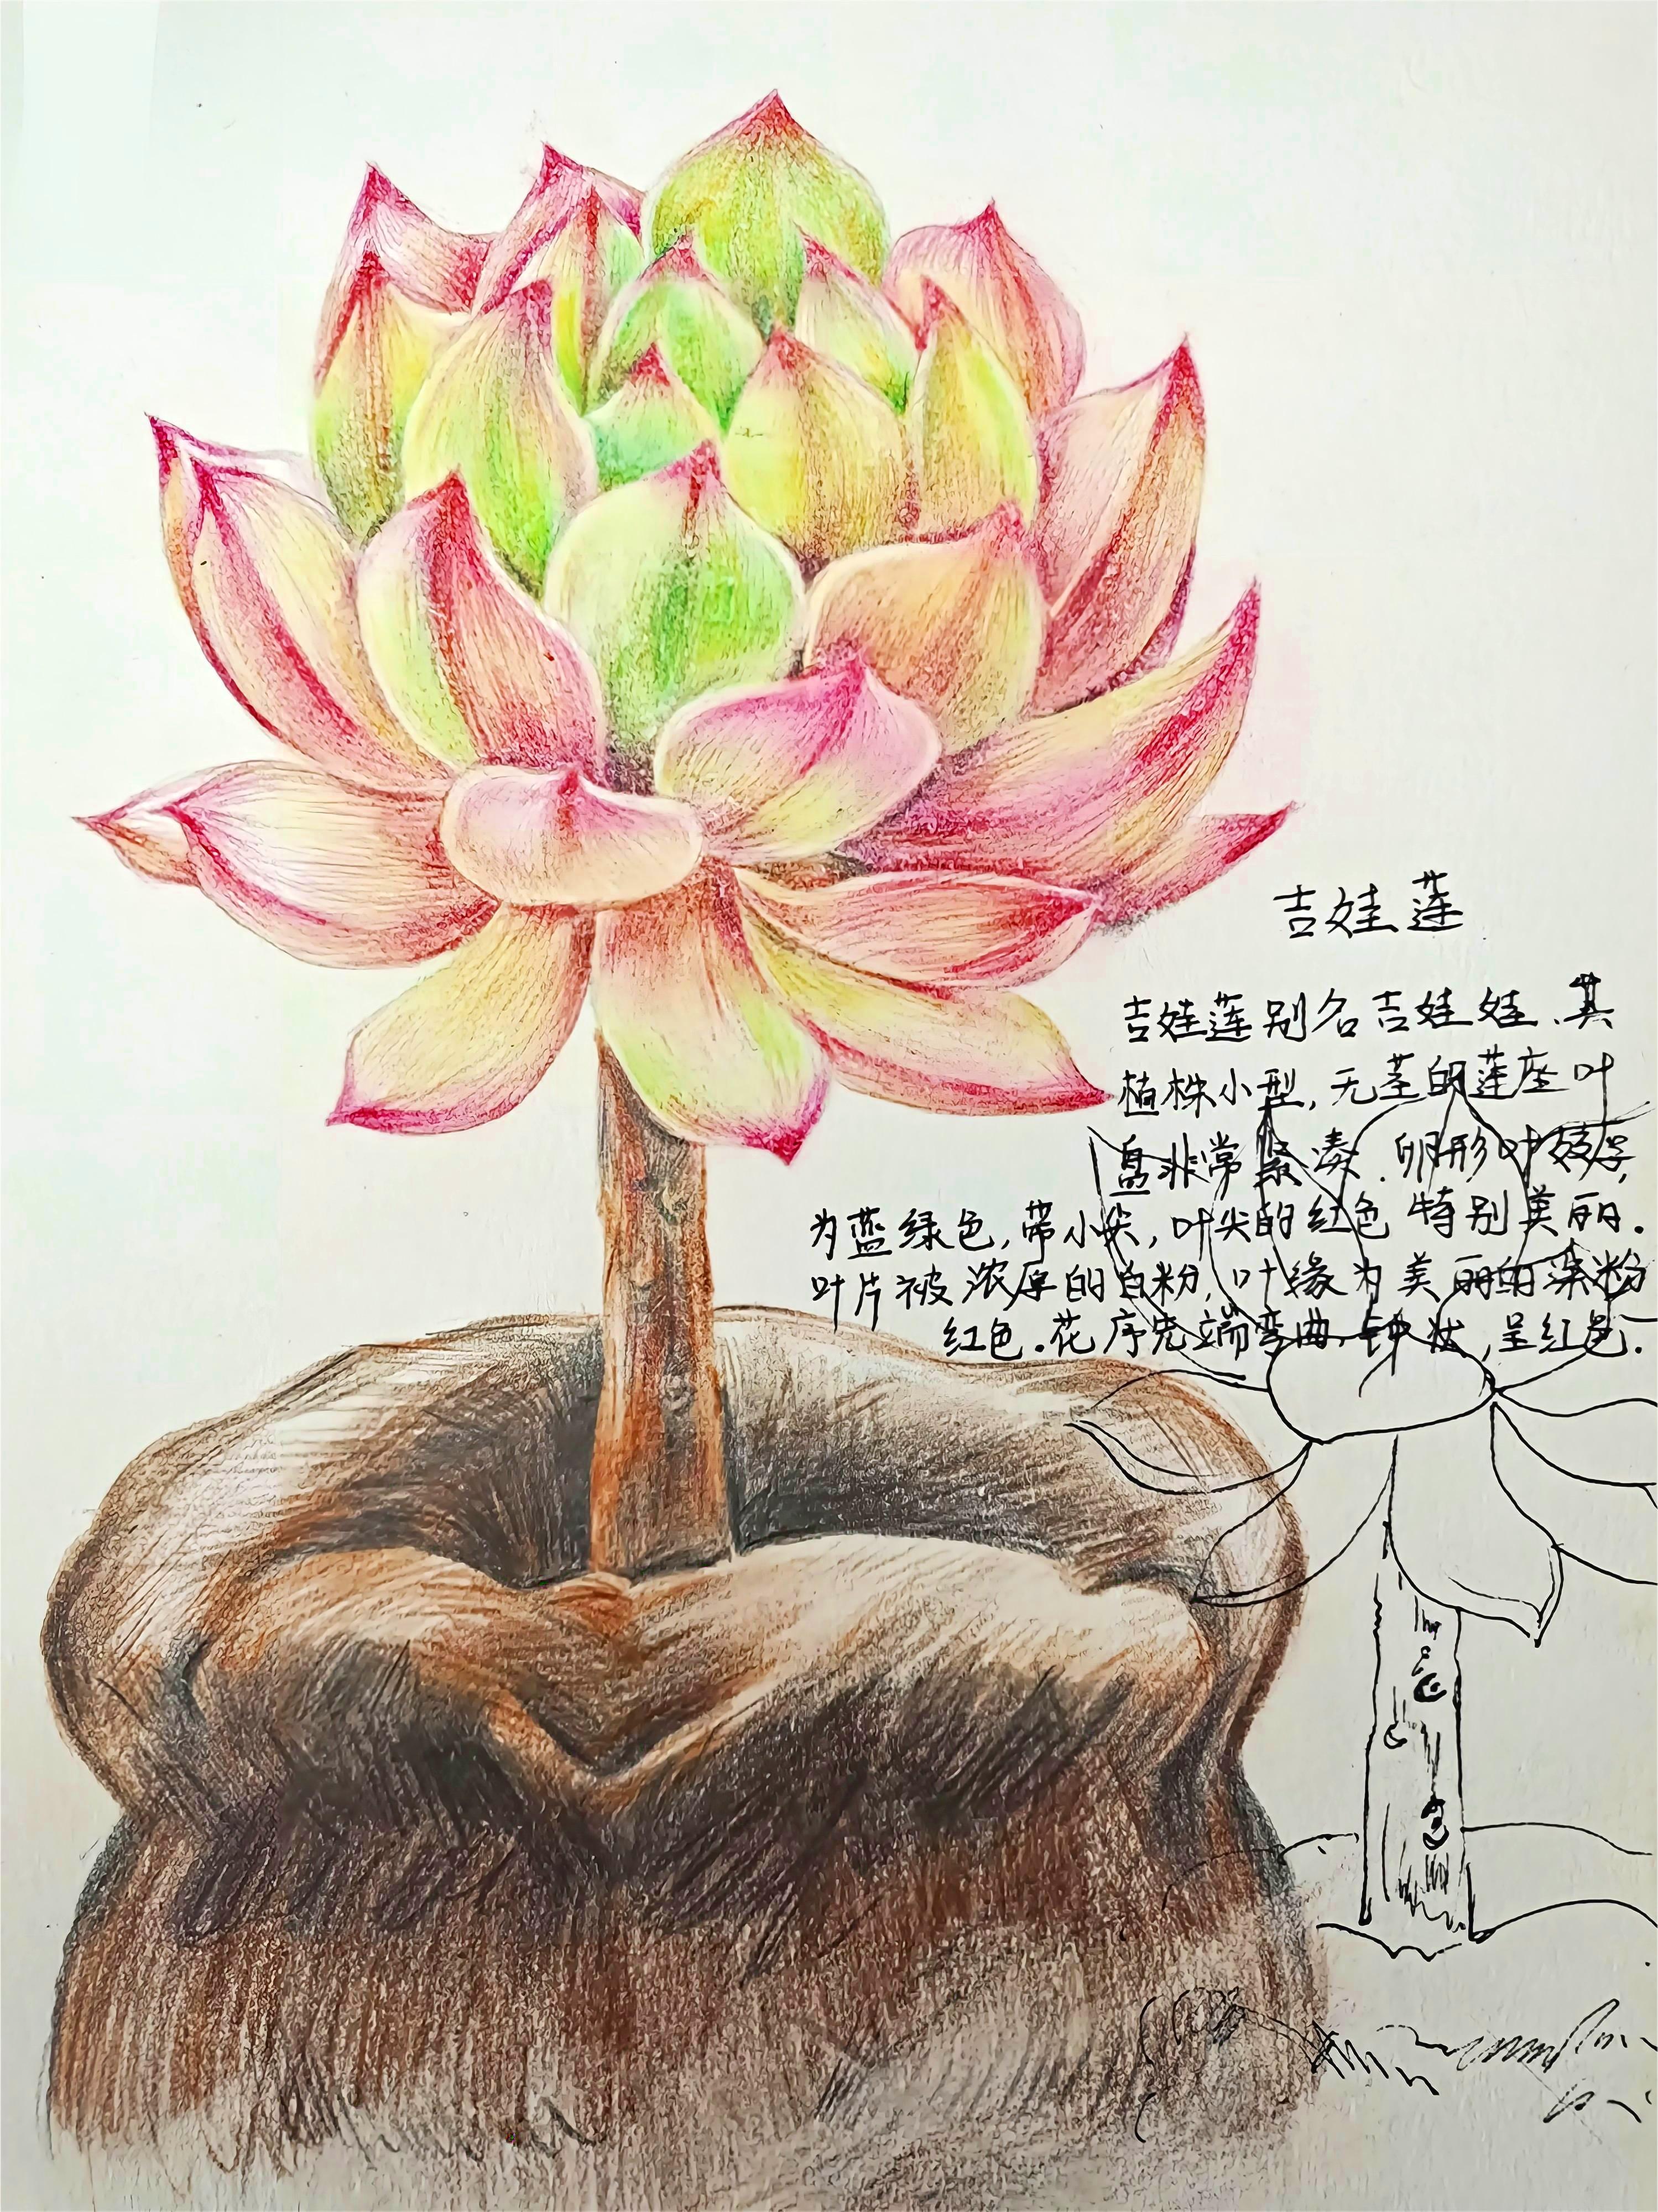 吉娃莲
吉娃莲别名吉娃娃、其
植株小型，无茎的莲座叶
盘非常紧凑.卵形叶较厚，
为蓝绿色，带小尖，叶尖的红色特别美丽.
叶片被浓厚的白粉，叶缘为美丽的深粉
红色.花序先端弯曲，钟状，呈红色.